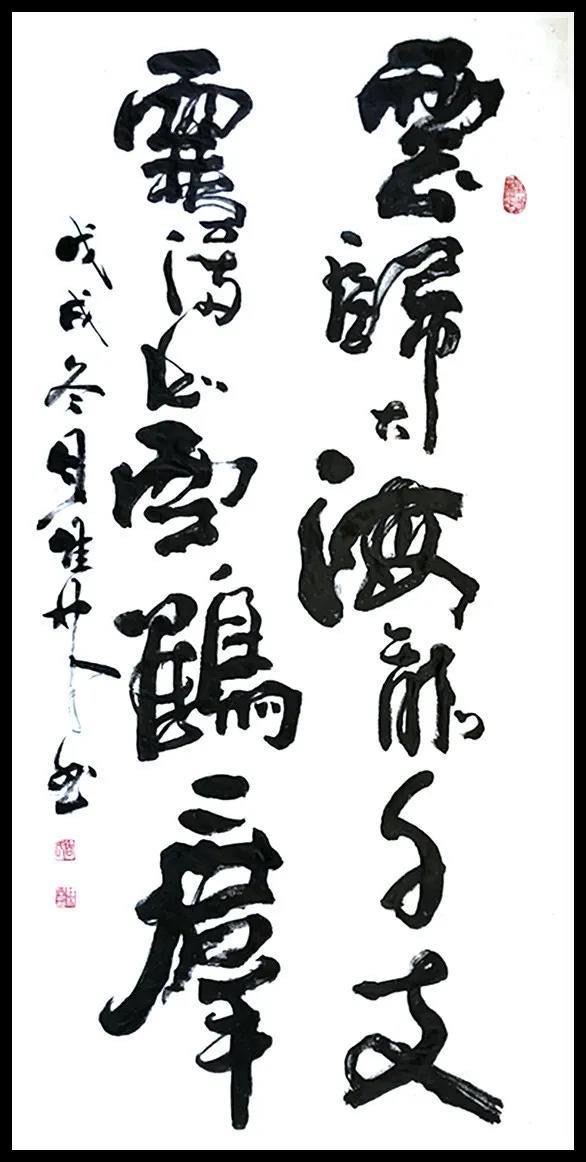 雲歸大海龍千丈
滿雪鶴一羣
戊戌冬月書